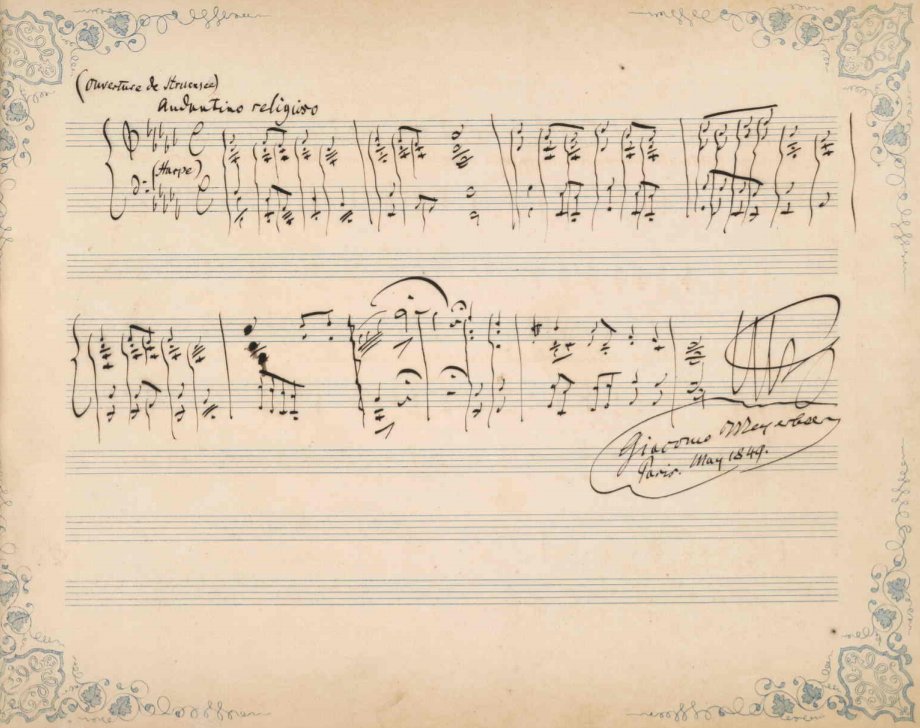 (Ouverture de Struensée)
Andantino religioso
(Harpe)
Giacomo Meyerbeer
Paris. May 1849.